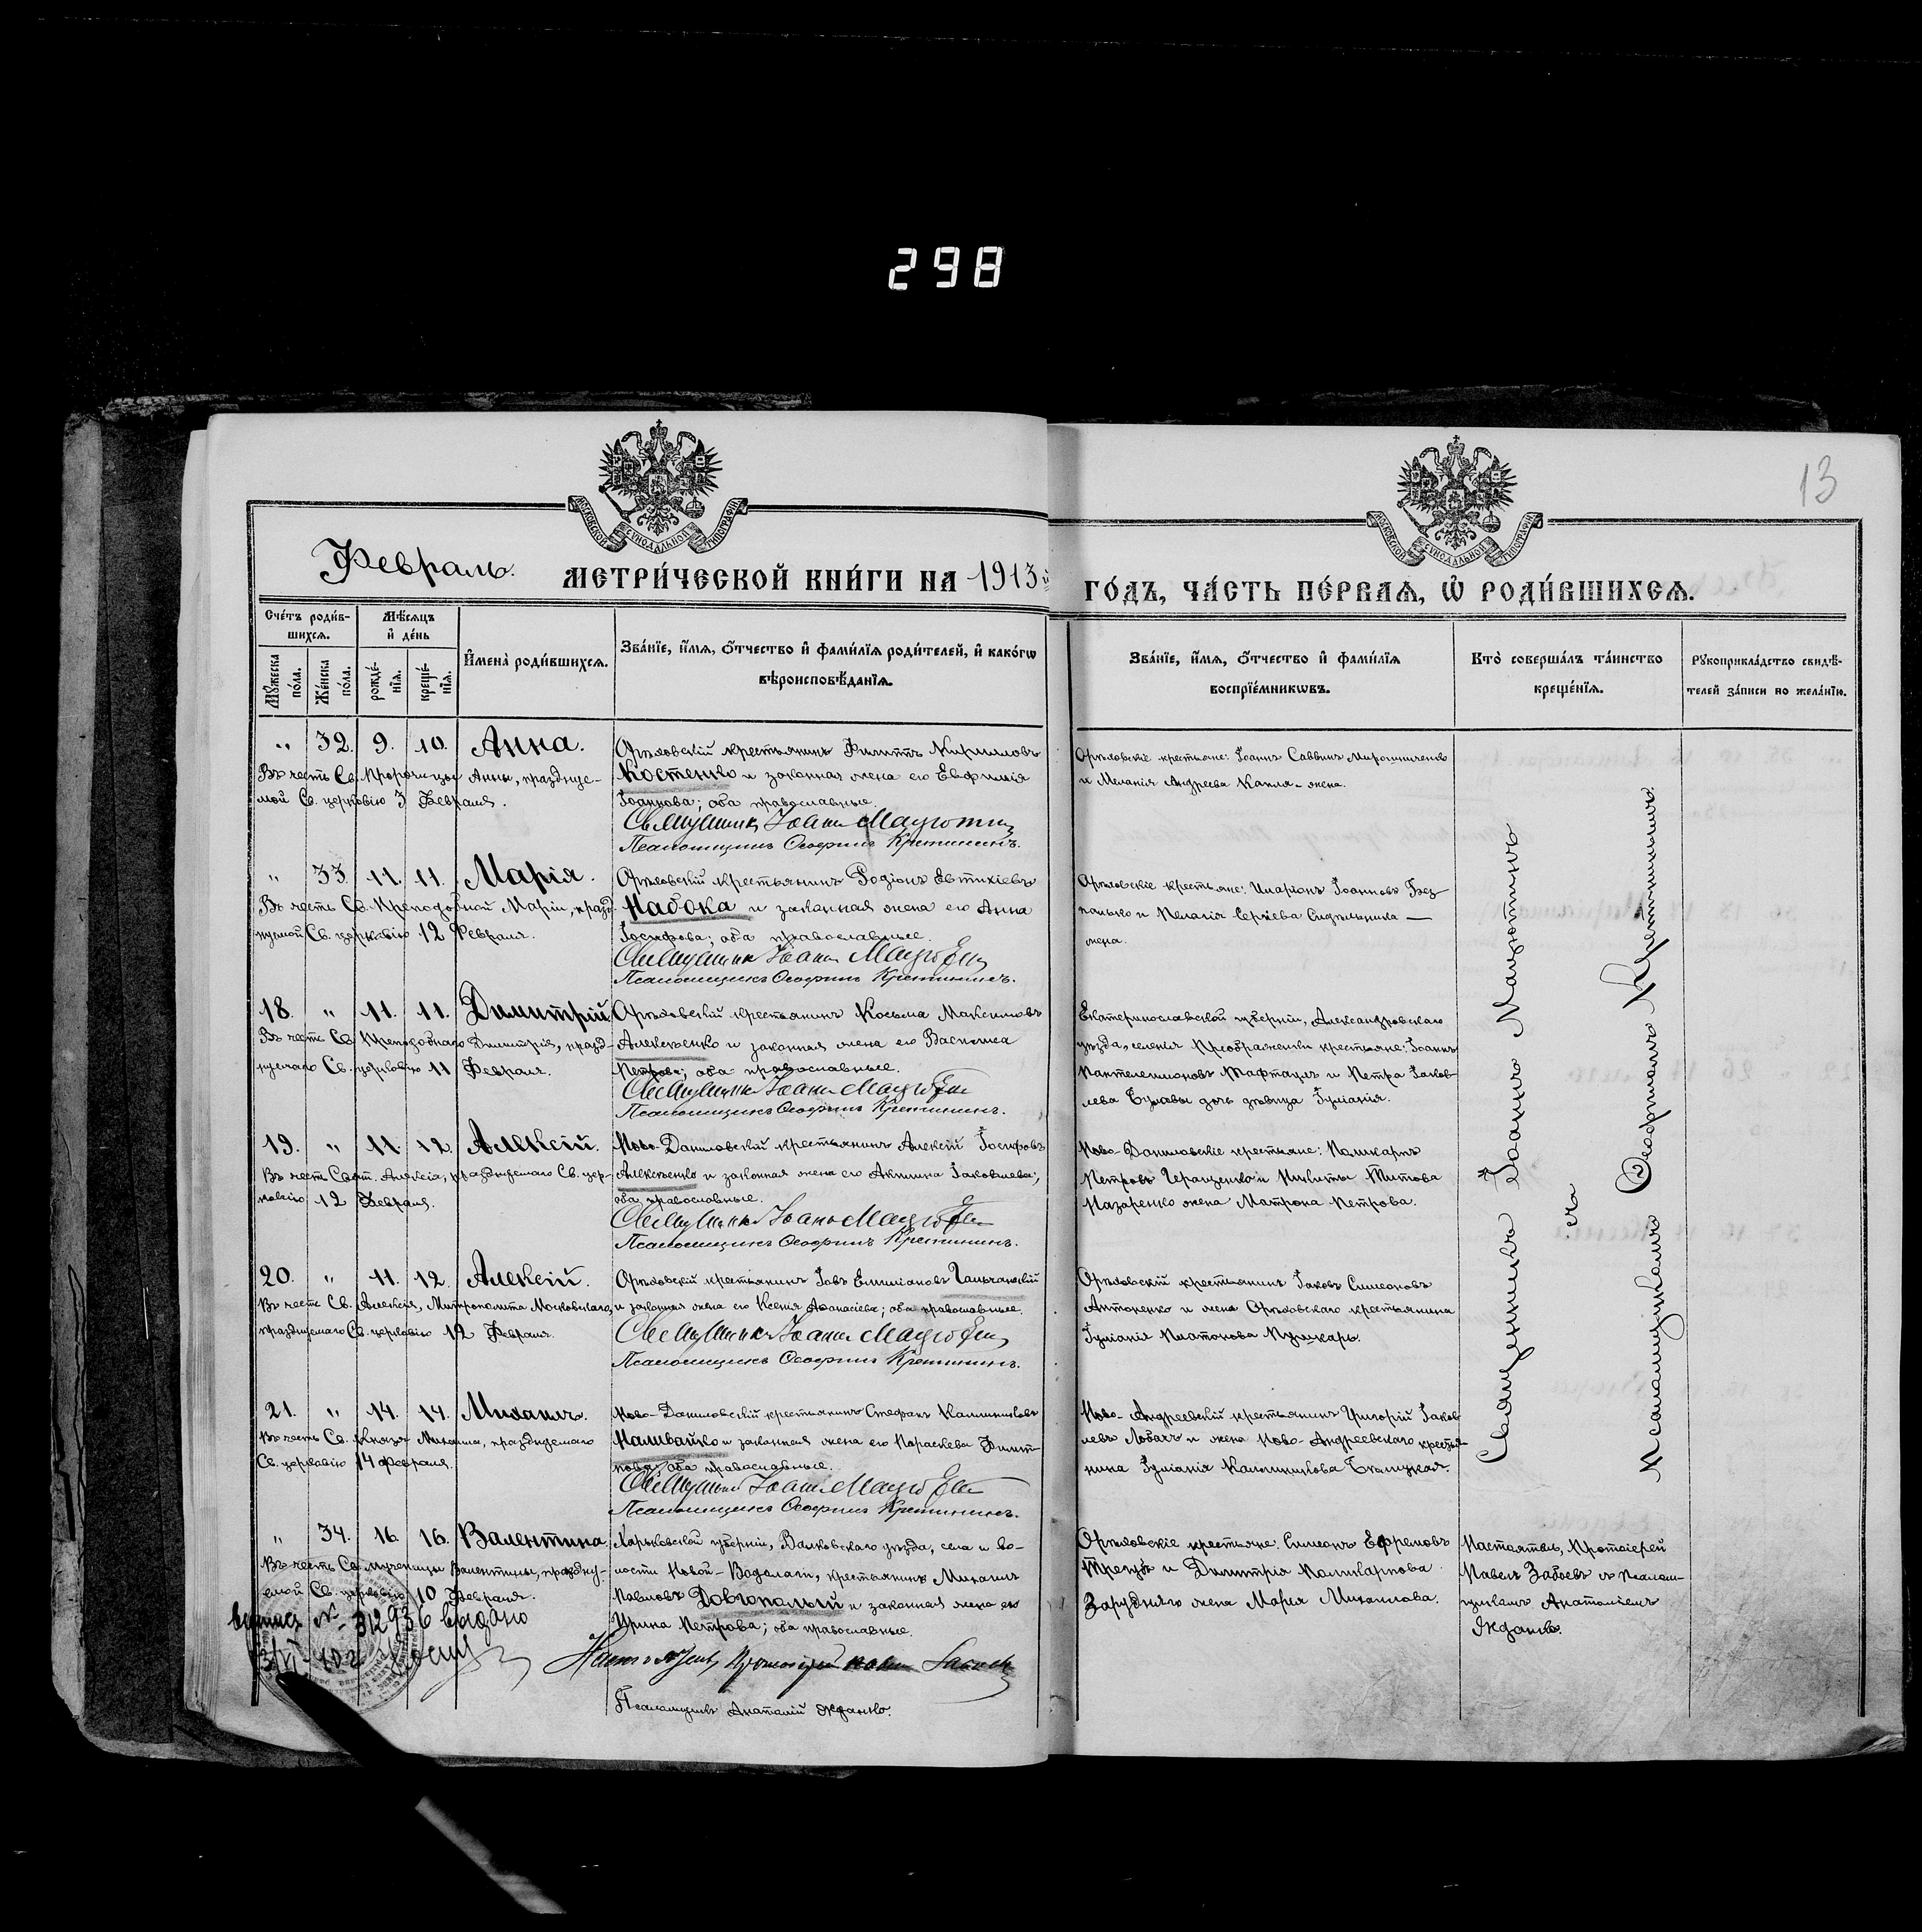 298
13
МОСКОВСКОЙ СѴНОДАЛЬНОЙ ТИПОГРАФІИ
МОСКОВСКОЙ СѴНОДАЛЬНОЙ ТИПОГРАФІИ
Февраль. МЕТРИ́ЧЕСКОЙ КНИ́ГИ НА 1913й ГО́ДЪ, ЧА́СТЬ ПЕ́РВАЯ, Ѡ҆ РОДИ́ВШИХСЯ.
Сче́тъ роди́в-
шихся.
Мѣ́сяцъ
и҆ де́нь
Мꙋ́жеска
по́ла.
Же́нска
по́ла.
рожде́-
нїя.
креще́-
нїя.
И҆мена̀ роди́вшихся.
Зва́нїе, и҆́мя, ѻ҆́тчество и҆ фами́лїя роди́телей, и҆ како́гѡ
вѣроисповѣ́данїя.
Зва́нїе, и҆́мя, ѻ҆́тчество и҆ фами́лїя
воспрїе́мникѡвъ.
Кто̀ соверша́лъ та́инство
креще́нїя.
Рꙋкоприкла́дство свидѣ́-
телей за́писи по жела́нїю.
" 32. 9. 10. Анна.
Въ честь Св. Пророчицы Анны, праздnуе-
мой Св. церковію 3 Февраля.
Орѣховскій крестьянинъ Филиппъ Кирилловъ
Костенко и законная жена его Евфимія
Іоаннова; оба православные.
Священникъ Іоаннъ Мацютинъ
Псаломщикъ Ѳеофилъ Кретининъ.
Орѣховскіе крестьяне: Іоаннъ Саввинъ Мирошниченко
и Меланія Андреева Капля - жена.
" 33. 11. 11. Марія.
Въ честь Св. Преподобной Маріи, празд-
нуемой Св. церковію 12 Февраля.
Орѣховскій крестьянинъ Родіонъ Евтихіевъ
Набока и законная жена его Анна
Іосифова; оба православные.
Священникъ Іоаннъ Мацютинъ
Псаломщикъ Ѳеофилъ Кретининъ.
Орѣховскіе крестьяне: Иларіонъ Іоанновъ Без-
палько и Пелагія Сергіева Сидѣльника —
жена.
18. " 11. 11. Димитрій
Въ честь Св. Преподобнаго Димитрія, празд-
нуемаго Св. церковію 11 Февраля.
Орѣховскій крестьянинъ Косьма Максимовъ
Алексѣенко и законная жена его Васелиса
Петрова; оба православные.
Священникъ Іоаннъ Мацютинъ
Псаломщикъ Ѳеофилъ Кретининъ.
Екатеринославской губерніи, Александровскаго
уѣзда, селенія Преображенки крестьяне: Іоаннъ
Пантелеимоновъ и Петра Іаков-
лева дочь дѣвица Іуліанія.
19. " 11. 12. Алексій.
Въ честь Свят. Алексія, празднуемаго Св. цер-
ковію 12 Февраля.
Ново-Даниловскій крестьянинъ Алексій Іосифовъ
Алексѣенко и законная жена его Акилина Іаковлева;
оба православные.
Священникъ Іоаннъ Мацютинъ
Псаломщикъ Ѳеофилъ Кретининъ.
Ново-Даниловскіе крестьяне: Поликарпъ
Петровъ Геращенко и Никиты Титова
Назаренко жена Матрона Петрова.
20. " 11. 12. Алексій.
Въ честь Св. Алексія, Митрополита Московскаго,
празднуемаго Св. церковію 12 Февраля.
Орѣховскій крестьянинъ Іовъ Емиліановъ Гальчанскій
и законная жена его Ксенія Аѳанасіева; оба православные.
Священникъ Іоаннъ Мацютинъ
Псаломщикъ Ѳеофилъ Кретининъ.
Орѣховскій крестьянинъ Іаковъ Симеоновъ
Антоненко и жена Орѣховскаго крестьянина
Іуліанія Платонова Пушкарь.
21. " 14. 14. Михаилъ.
Въ честь Св. Князя Михаила, празднуемаго
Св. церковію 14 Февраля.
Ново-Даниловскій крестьянинъ Стефанъ Каллиниковъ
Наливайко и законная жена его Параскева Филип-
пова; оба православные.
Священникъ Іоаннъ Мацютинъ
Псаломщикъ Ѳеофилъ Кретининъ.
Ново-Андреевскій крестьянинъ Григорій Іаков-
левъ Лобачъ и жена Ново-Андреевскаго крестья-
нина Іуліанія Каллиникова
" 34. 16. 16. Валентина
Въ честь Св. мученицы Валентины, праздну-
емой Св. церковію 10 Февраля.
Харьковской губерніи, Валковскаго уѣзда, села и во-
лости Новой-Водолаги, крестьянинъ Михаилъ
Павловъ Довгополый и законная жена его
Ирина Петрова; оба православные.
Настоятель, Протоіерей Павелъ Забоевъ
Псаломщикъ Анатолій Жданко.
Орѣховскіе крестьяне: Симеонъ Ефремовъ
и Димитрія Поликарпова
Зарудняго жена Марія Михаилова.
Настоятель, Протоіерей
Павелъ Забоевъ съ Псалом-
щикомъ Анатоліемъ
Жданко.
Священникъ Іоаннъ Мацютинъ
съ
Псаломщикомъ Ѳеофиломъ Кретининымъ.
№ 312936 видано